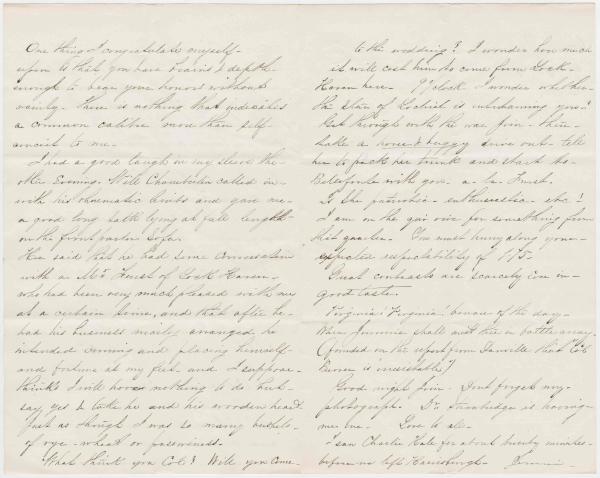 One thing I congratulate myself
upon is that you have brains & depth
enough to bear your honors without
vanity. There is nothing that indicates
a common calibre more than self-
conceit to me.
I had a good laugh in my sleeve the
other Evening. Will Chamberlin called in
with his rheumatic limbs and gave me
a good long talk lying at full length
on the front parlor sofa.
He said that he had some conversation
with a Mr Furst of Lock Haven
who had been very much pleased with me
at a certain time, and that after he
had his business matters arranged, he
intended coming and placing himself
and fortune at my feet and I suppose
thinks I will have nothing to do but
say yes & take he and his wooden head
Just as though I was so many bushels
of rye - wheat or
What think you Cob? Will you come
to the wedding? I wonder how much
it will cost him to come from Lock
Haven here. 9 O'clock I wonder whether
the of Lochiel is entertaining you?
Get through with the war first - then
take a horse & buggy drive out - tell
her to pack her trunk and start to
Bellefonte with you. a - la - Furst.
Is she patriotic - enthusiastic - etc!
I am on the qui vive for something from
that quarter. You must hurry along your
expected respectability of 175.
Great contrasts are scarcely in
good taste.
Virginia Virginia! beware of the day
When Jimmie shall meet thee in battle array
(founded on the report from Danville that Cob
Beaver is irresistable.)
Good night Jim. Dont forget my
photograph. Dr is having
me one. Love to all.
I saw Charlie Hale for about twenty minutes
before he left Harrisburgh.